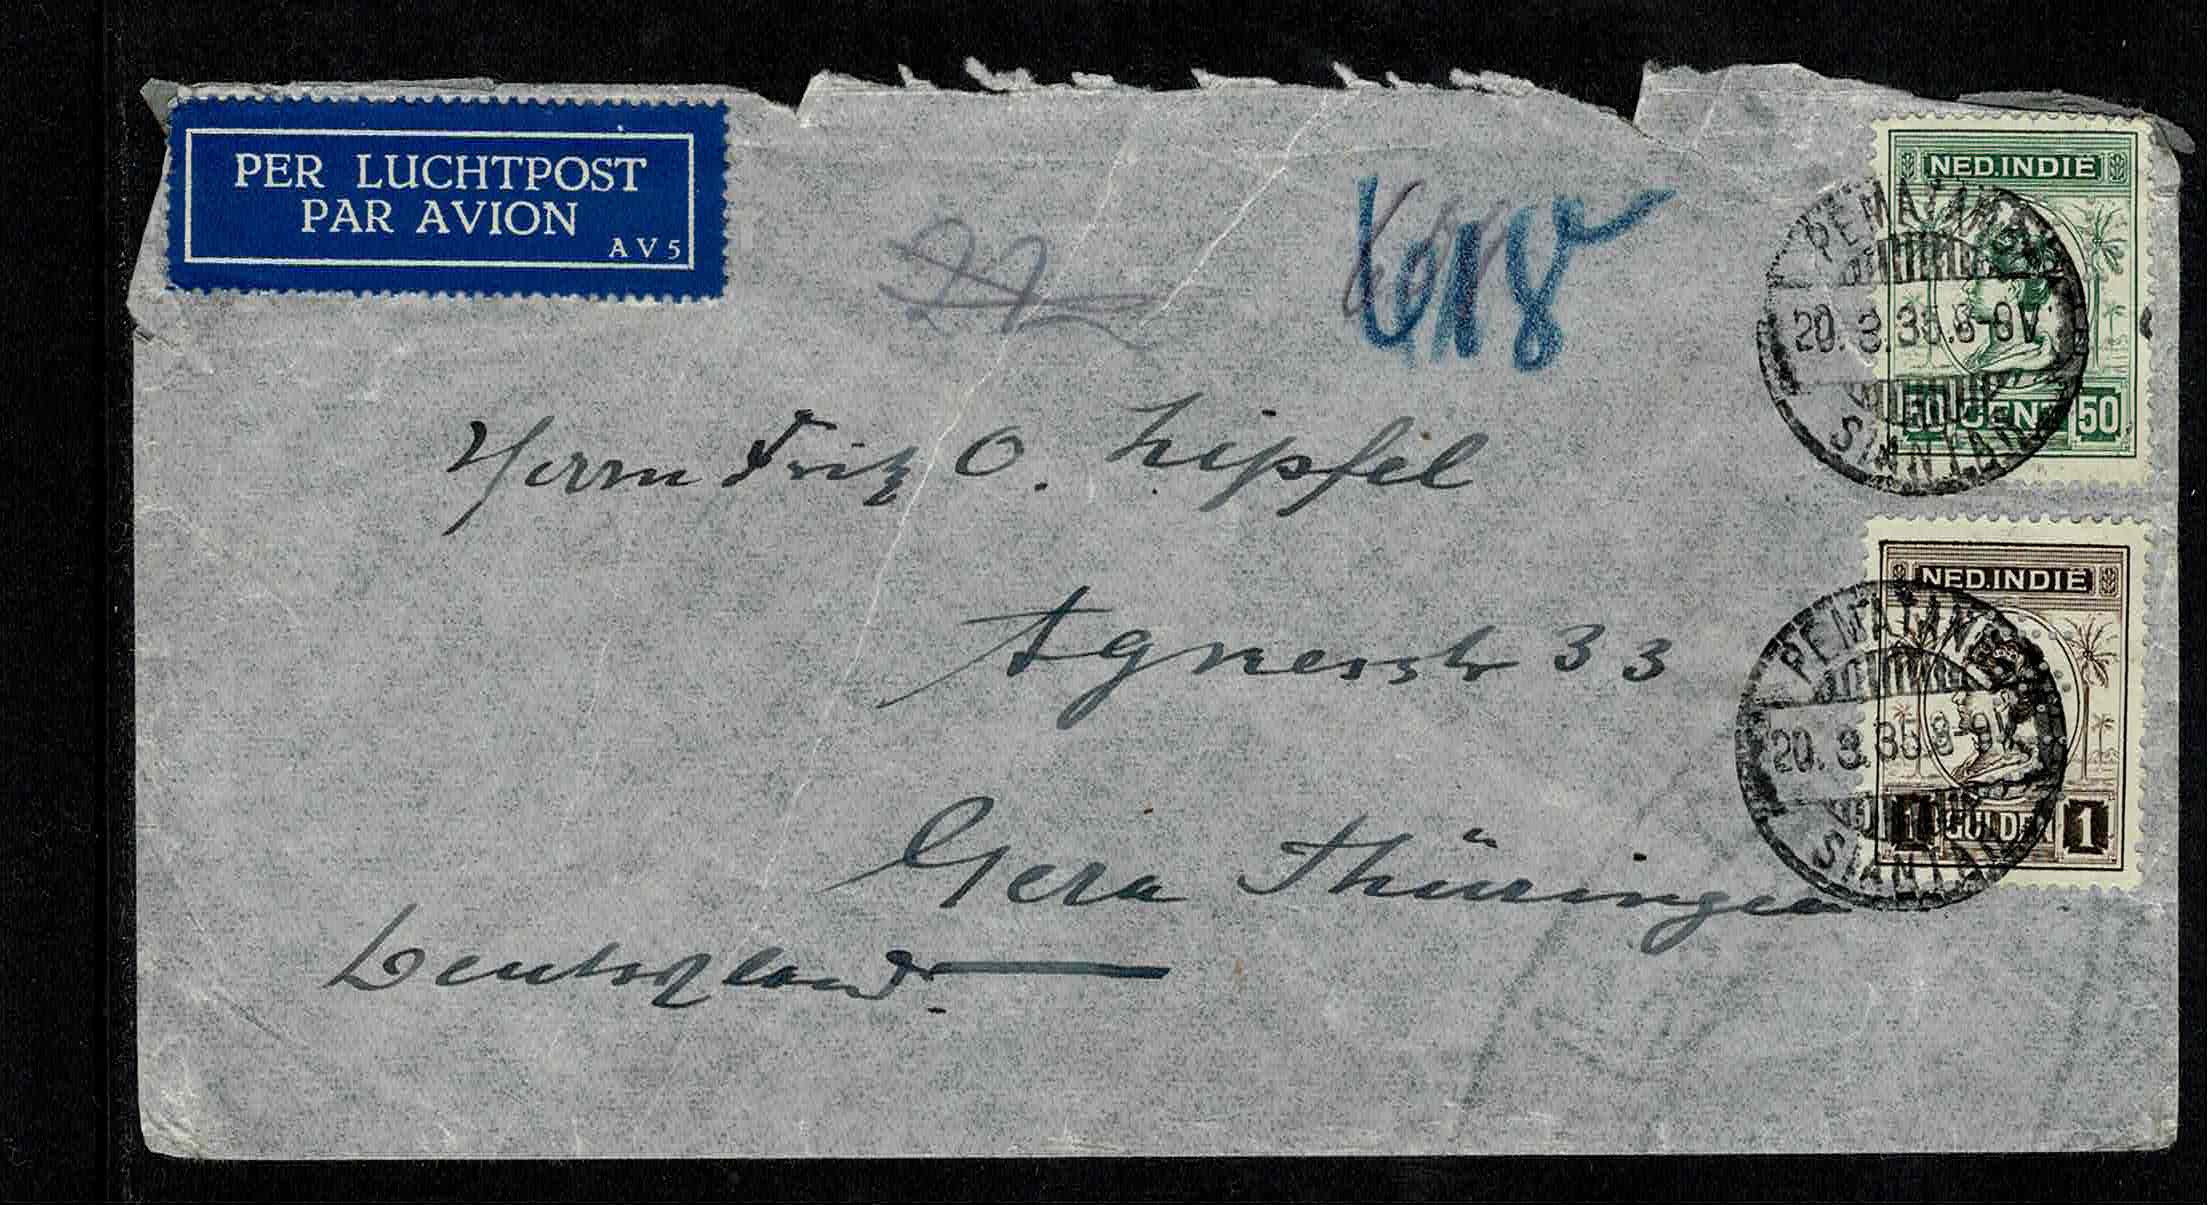 PER LUCHTPOST
PAR AVION
AV5
22
618
NED.INDIË
50 CENT 50
PEMATANG
20.3.35.8-9V
SIANTAR
Herrn Fritz O. Zipfel
Agnesstr 33
Gera Thüringen
Deutschland
NED.INDIË
1 GULDEN 1
PEMATANG
20.3.35.8-9V
SIANTAR